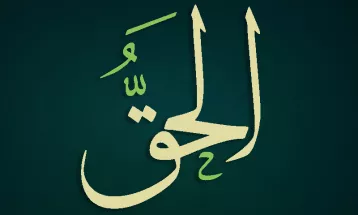 الحَقُّ